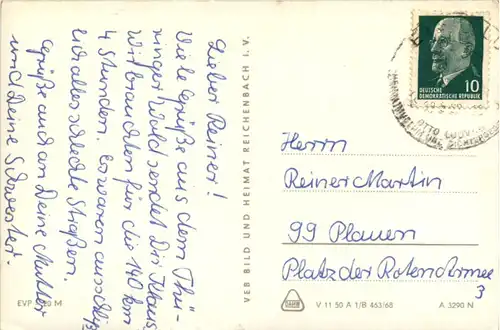 Lieber Reiner!
Viele Grüße aus dem Thü-
ringer Wald sendet Dir Klaus.
Wir brauchten für die 140 km
4 Stunden. Es waren ausschließ
lich alles schlechte Straßen.
Grüße auch an Deine Mutter
und Deine Schwester.
EVP M
VEB BILD UND HEIMAT REICHENBACH I. V.
10
DEUTSCHE
DEMOKRATISCHE REPUBLIK
OTTO LUDWIG
Herrn
Reiner Martin
99 Plauen
Platz der Roten Armee
3
V 11 50 A 1/B 463/68
A 3290 N